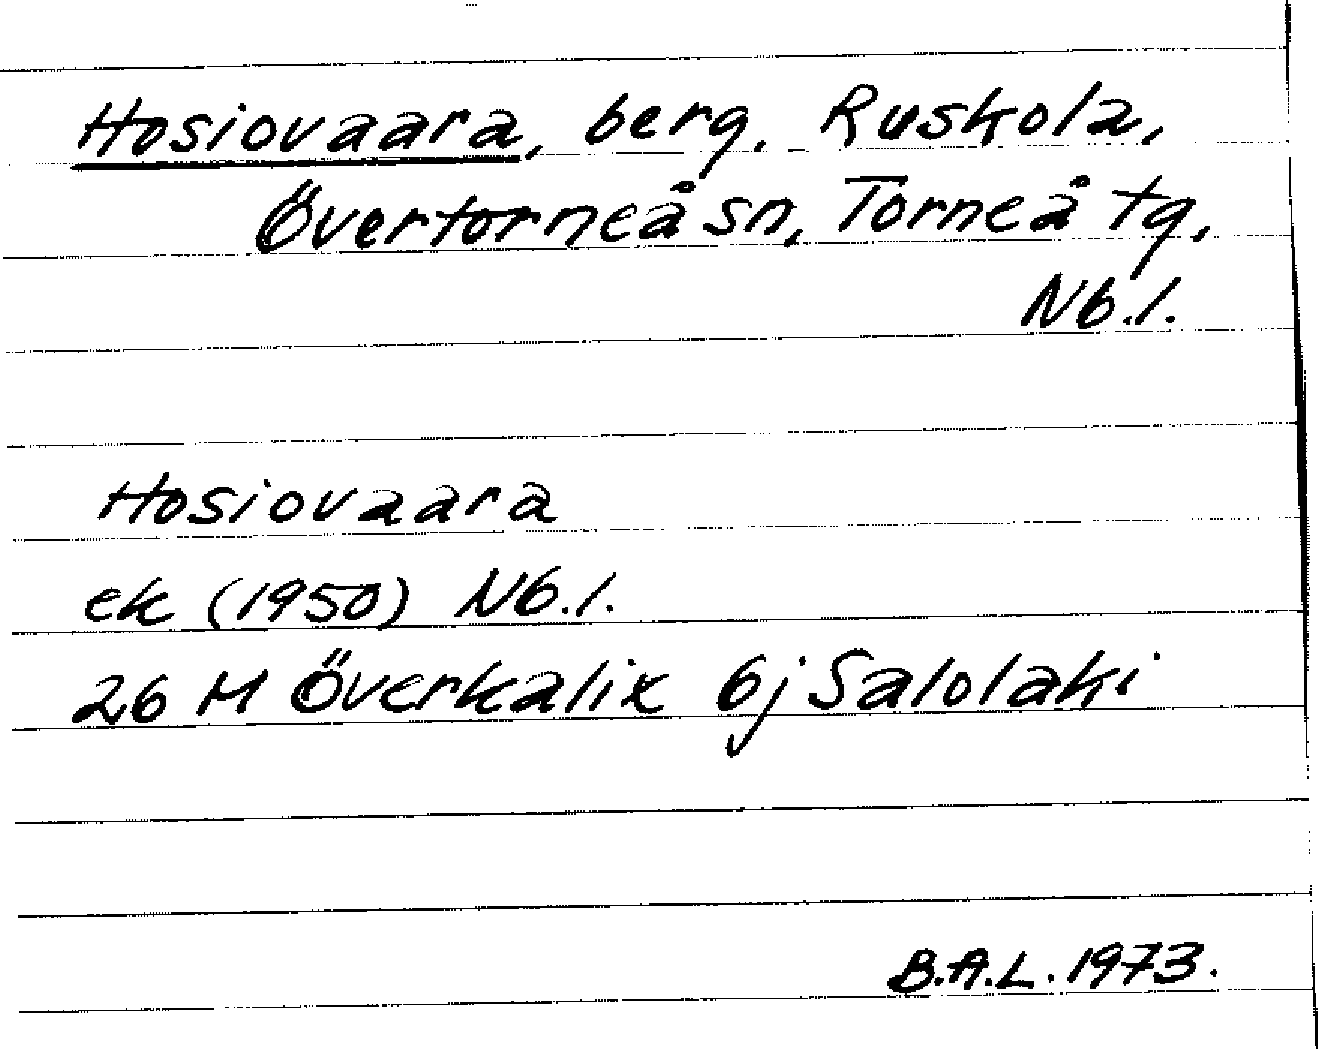 Hosiovaara, berg. Ruskola,
Övertorneå sn, Torneå tg,
Nb.l.
Hosiovaara
ek (1950) Nb.l.
26 M Överkalix 6j Salolaki
B.A.L. 1973.